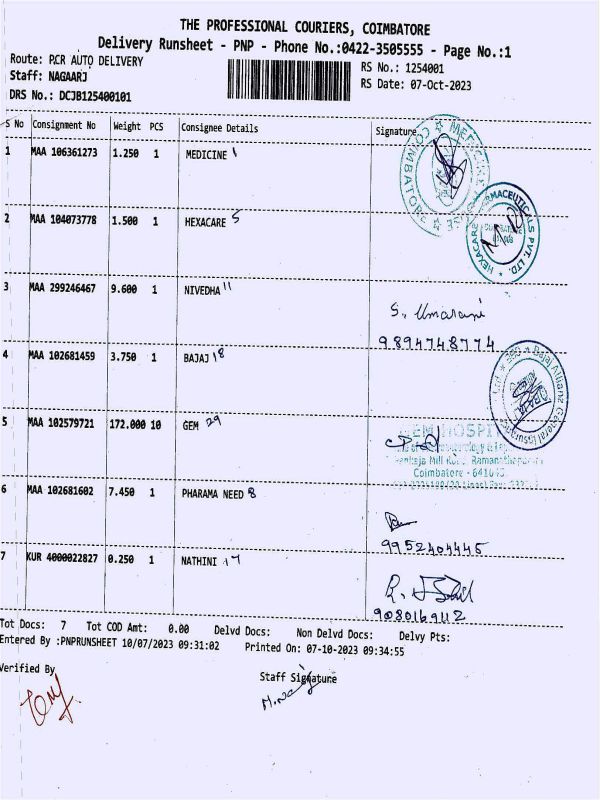 THE PROFESSIONAL COURIERS, COIMBATORE
Delivery Runsheet - PNP - Phone No.:0422-3505555 - Page No.:1
Route: PCR AUTO DELIVERY
RS No.: 1254001
Staff: NAGAARJ
RS Date: 07-Oct-2023
DRS No.: DCJB125400101
S No Consignment No Weight PCS Consignee Details Signature
1 MAA 106361273 1.250 1 MEDICINE 1
2 MAA 104073778 1.500 1 HEXACARE 5
HEXACARE PHARMACEUTICALS PVT. LTD.
3 MAA 299246467 9.600 1 NIVEDHA 11
S. Umarani
9894748774
4 MAA 102681459 3.750 1 BAJAJ 18
Bajaj Allianz General Insurance
5 MAA 102579721 172.000 10 GEM 29
GEM HOSPITAL
Coimbatore - 641045
6 MAA 102681602 7.450 1 PHARAMA NEED 8
9952404445
7 KUR 4000022827 0.250 1 NATHINI 17
9080169112
Tot Docs: 7 Tot COD Amt: 0.00 Delvd Docs: Non Delvd Docs: Delvy Pts:
Entered By :PNPRUNSHEET 10/07/2023 09:31:02 Printed On: 07-10-2023 09:34:55
Verified By
Staff Signature